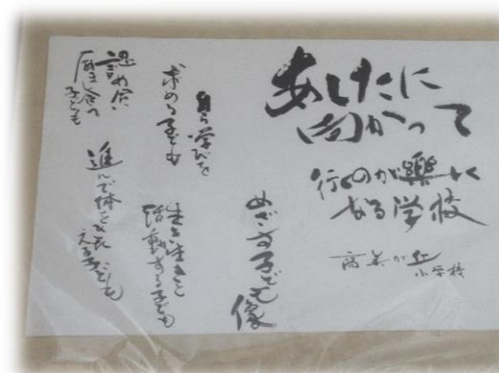 あしたに
向かって
行くのが楽しく
なる学校
高美が丘
小学校
めざす子ども像
自ら学びを
求める子ども
生き生きと
活動する子ども
認め合い
励まし合う
子ども
進んで体を
きたえる子ども